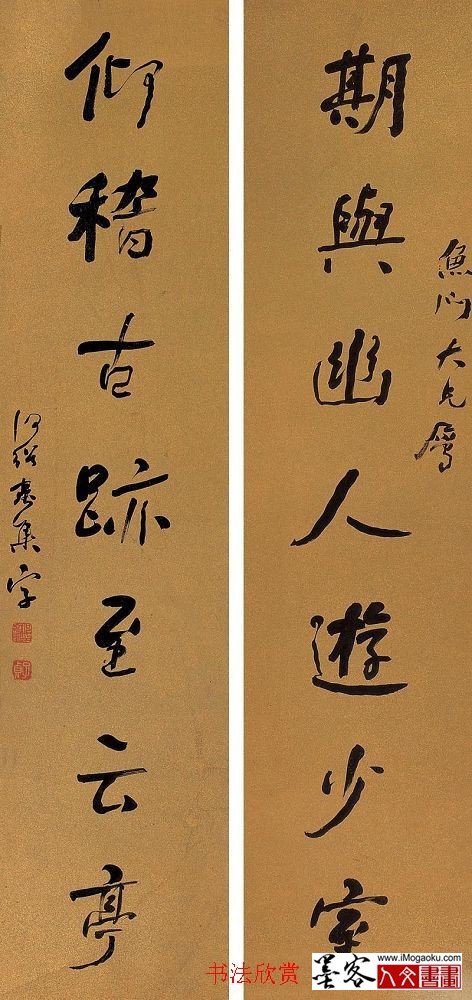 期與幽人遊少室
魚門大兄屬
仰稽古跡至云亭
何紹基集字
书法欣赏
墨客
www.iMogaoku.com
人文書畫